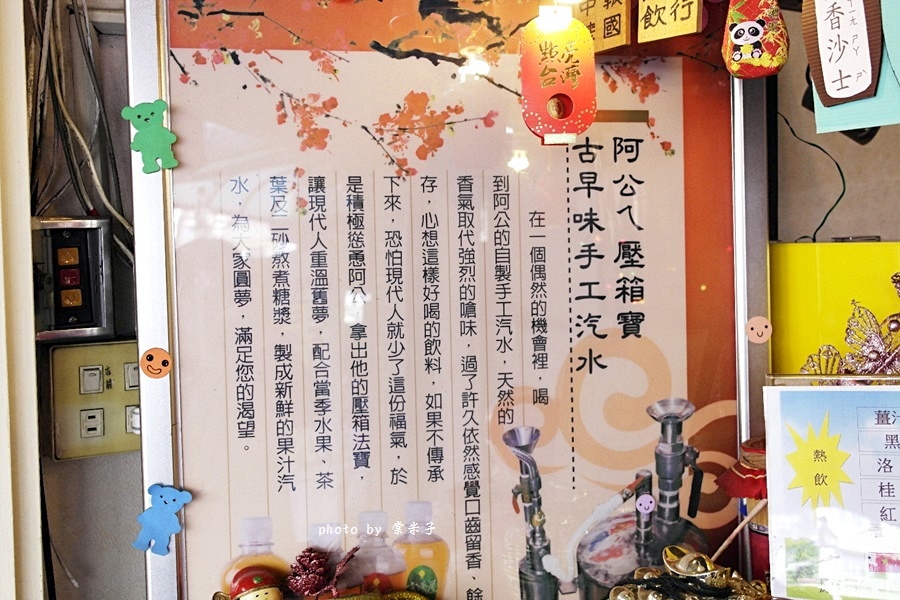 阿公ㄟ壓箱寶
古早味手工汽水
在一個偶然的機會裡，喝
到阿公的自製手工汽水，天然的
香氣取代強烈的嗆味，過了許久依然感覺口齒留香、餘
存，心想這樣好喝的飲料，如果不傳承
下來，恐怕現代人就少了這份福氣，於
是積極慫恿阿公，拿出他的壓箱法寶，
讓現代人重溫舊夢，配合當季水果、茶
葉及二砂熬煮糖漿，製成新鮮的果汁汽
水，為大家圓夢，滿足您的渴望。
點亮
台灣
報國
飲行
香沙士
熱飲
薑汁
黑
洛
桂
紅
photo by 棠米子